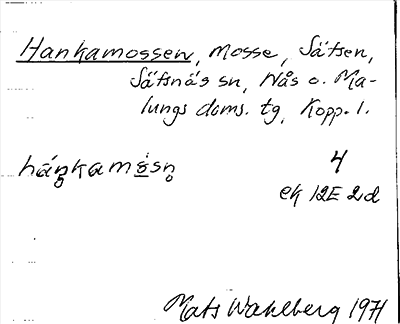 Hankamossen, mosse, Sätsen,
Sätsnäs sn, Nås o. Ma-
lungs doms. tg, Kopp. l.
hánkamåsn 4
ek 12E 2d
Mats Wahlberg 1971